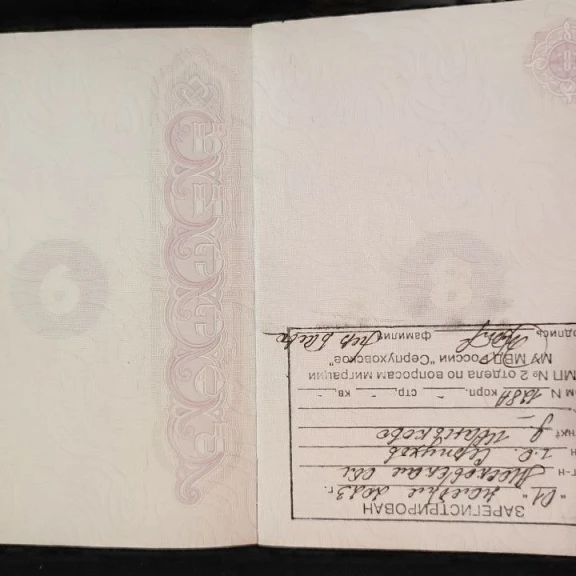 ЗАРЕГИСТРИРОВАН
"01" 2023 г.
г-н Московская обл
н г.о. Серпухов
нкт д. Иваньково
м N 128А корп. - стр - кв. -
МП № 2 отдела по вопросам миграции
МУ МВД России "Серпуховское"
одпись фамилия
8
9